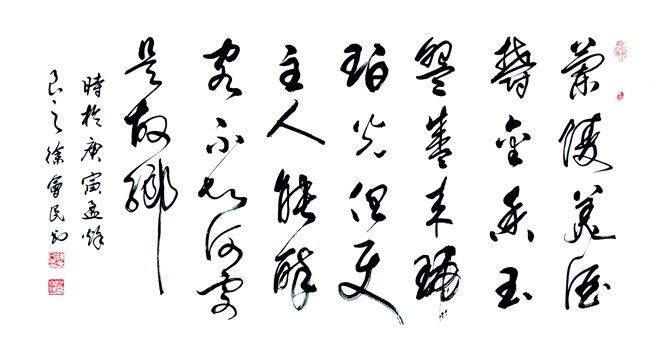 蘭陵美酒
鬱金香玉
盌盛来琥
珀光但使
主人能醉
客不知何處
是故鄉
時於庚寅孟秋
之徐民书